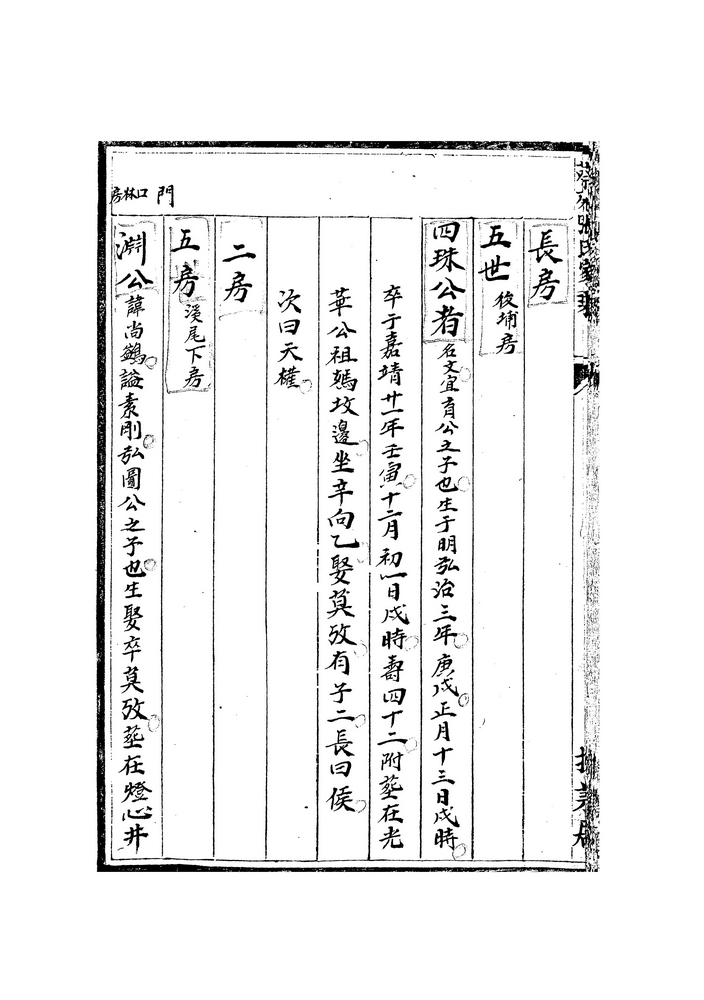 長房
五世 後埔房
四珠公者 名文宜育公之子也生于明弘治三年庚戌正月十三日戌時
卒于嘉靖廿一年壬寅十二月初一日戌時壽四十二附塟在光
華公祖媽坟邊坐辛向乙娶莫攷有子二長曰侯
次曰天權
二房
五房 溪尾下房
門口林房
淵公 諱尚鷁謚素剛弘圖公之子也生娶卒莫攷塟在燈心井